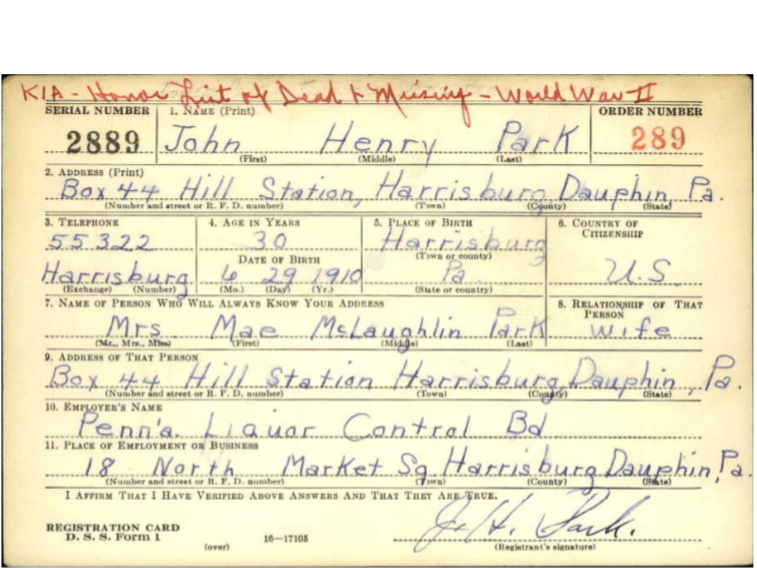 KIA - Honor List of Dead & Missing - World War II
SERIAL NUMBER 1. NAME (Print) ORDER NUMBER
2889 John Henry Park 289
(First) (Middle) (Last)
2. ADDRESS (Print)
Box 44 Hill Station, Harrisburg Dauphin, Pa.
(Number and street or R. F. D. number) (Town) (County) (State)
3. TELEPHONE 4. AGE IN YEARS 5. PLACE OF BIRTH 6. COUNTRY OF CITIZENSHIP
55322 30 Harrisburg
DATE OF BIRTH (Town or county)
Harrisburg 6 29 1910 Pa. U.S.
(Exchange) (Number) (Mo.) (Day) (Yr.) (State or country)
7. NAME OF PERSON WHO WILL ALWAYS KNOW YOUR ADDRESS 8. RELATIONSHIP OF THAT PERSON
Mrs Mae McLaughlin Park wife
(Mr., Mrs., Miss) (First) (Middle) (Last)
9. ADDRESS OF THAT PERSON
Box 44 Hill Station Harrisburg, Dauphin, Pa.
(Number and street or R. F. D. number) (Town) (County) (State)
10. EMPLOYER'S NAME
Penn'a. Liquor Control Bd
11. PLACE OF EMPLOYMENT OR BUSINESS
18 North Market Sq. Harrisburg Dauphin, Pa.
(Number and street or R. F. D. number) (Town) (County) (State)
I AFFIRM THAT I HAVE VERIFIED ABOVE ANSWERS AND THAT THEY ARE TRUE.
J. H. Park.
REGISTRATION CARD
D. S. S. Form 1 (over) 16—17105 (Registrant's signature)